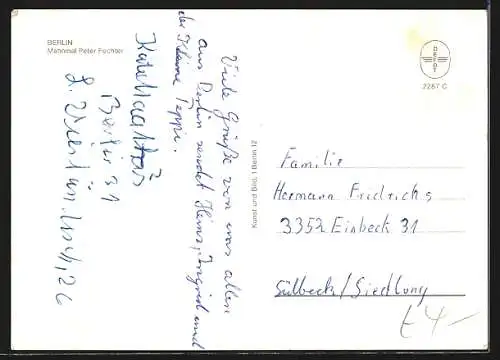 BERLIN
Mahnmal Peter Fechter
Viele Grüße von uns allen
aus Berlin sendet Heinz, Ingrid und
der kleine Teppi.
Berlin 31
Kunst und Bild, 1 Berlin 12
DEFOT
2287 C
Familie
Hermann Friedrichs
3352 Einbeck 31
Sülbeck/Siedlung
4-